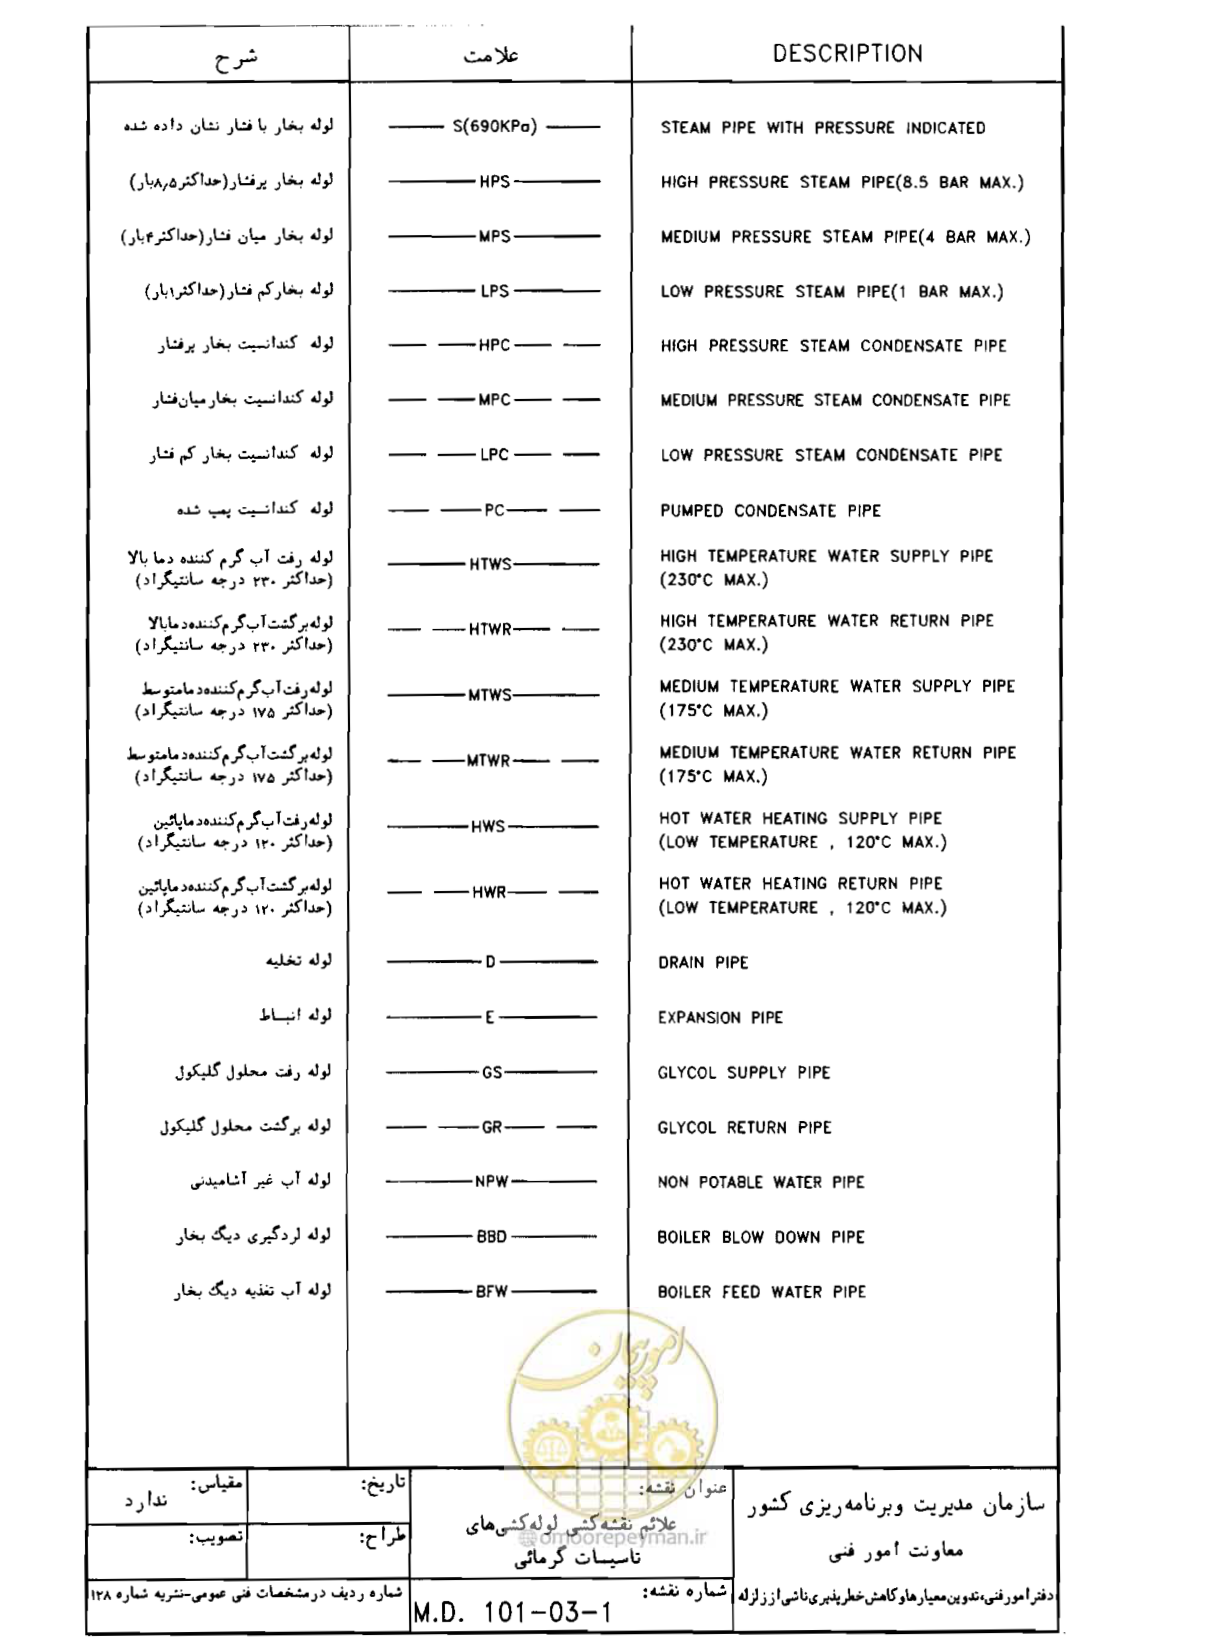 شرح علامت DESCRIPTION
لوله بخار با فشار نشان داده شده S(690KPa) STEAM PIPE WITH PRESSURE INDICATED
لوله بخار پرفشار(حداکثر۸٫۵بار) HPS HIGH PRESSURE STEAM PIPE(8.5 BAR MAX.)
لوله بخار میان فشار(حداکثر۴بار) MPS MEDIUM PRESSURE STEAM PIPE(4 BAR MAX.)
لوله بخارکم فشار(حداکثر۱بار) LPS LOW PRESSURE STEAM PIPE(1 BAR MAX.)
لوله کندانسیت بخار پرفشار HPC HIGH PRESSURE STEAM CONDENSATE PIPE
لوله کندانسیت بخارمیان‌فشار MPC MEDIUM PRESSURE STEAM CONDENSATE PIPE
لوله کندانسیت بخار کم فشار LPC LOW PRESSURE STEAM CONDENSATE PIPE
لوله کندانسیت پمپ شده PC PUMPED CONDENSATE PIPE
لوله رفت آب گرم کننده دما بالا HTWS HIGH TEMPERATURE WATER SUPPLY PIPE
(حداکثر ۲۳۰ درجه سانتیگراد) (230°C MAX.)
لوله‌برگشت‌آب‌گرم‌کننده‌دمابالا HTWR HIGH TEMPERATURE WATER RETURN PIPE
(حداکثر ۲۳۰ درجه سانتیگراد) (230°C MAX.)
لوله‌رفت‌آب‌گرم‌کننده‌دمامتوسط MTWS MEDIUM TEMPERATURE WATER SUPPLY PIPE
(حداکثر ۱۷۵ درجه سانتیگراد) (175°C MAX.)
لوله‌برگشت‌آب‌گرم‌کننده‌دمامتوسط MTWR MEDIUM TEMPERATURE WATER RETURN PIPE
(حداکثر ۱۷۵ درجه سانتیگراد) (175°C MAX.)
لوله‌رفت‌آب‌گرم‌کننده‌دماپائین HWS HOT WATER HEATING SUPPLY PIPE
(حداکثر ۱۲۰ درجه سانتیگراد) (LOW TEMPERATURE , 120°C MAX.)
لوله‌برگشت‌آب‌گرم‌کننده‌دماپائین HWR HOT WATER HEATING RETURN PIPE
(حداکثر ۱۲۰ درجه سانتیگراد) (LOW TEMPERATURE , 120°C MAX.)
لوله تخلیه D DRAIN PIPE
لوله انبساط E EXPANSION PIPE
لوله رفت محلول گلیکول GS GLYCOL SUPPLY PIPE
لوله برگشت محلول گلیکول GR GLYCOL RETURN PIPE
لوله آب غیر آشامیدنی NPW NON POTABLE WATER PIPE
لوله لردگیری دیگ بخار BBD BOILER BLOW DOWN PIPE
لوله آب تغذیه دیگ بخار BFW BOILER FEED WATER PIPE
امورپیمان
سازمان مدیریت وبرنامه‌ریزی کشور
معاونت امور فنی
دفترامورفنی،تدوین‌معیارهاوکاهش‌خطرپذیری‌ناشی‌اززلزله
عنوان نقشه:
علائم نقشه‌کشی لوله‌کشی‌های
omoorepeyman.ir
تاسیسات گرمائی
شماره نقشه:
M.D. 101-03-1
تاریخ:
مقیاس:
ندارد
طراح:
تصویب:
شماره ردیف درمشخصات فنی عمومی-نشریه شماره ۱۲۸